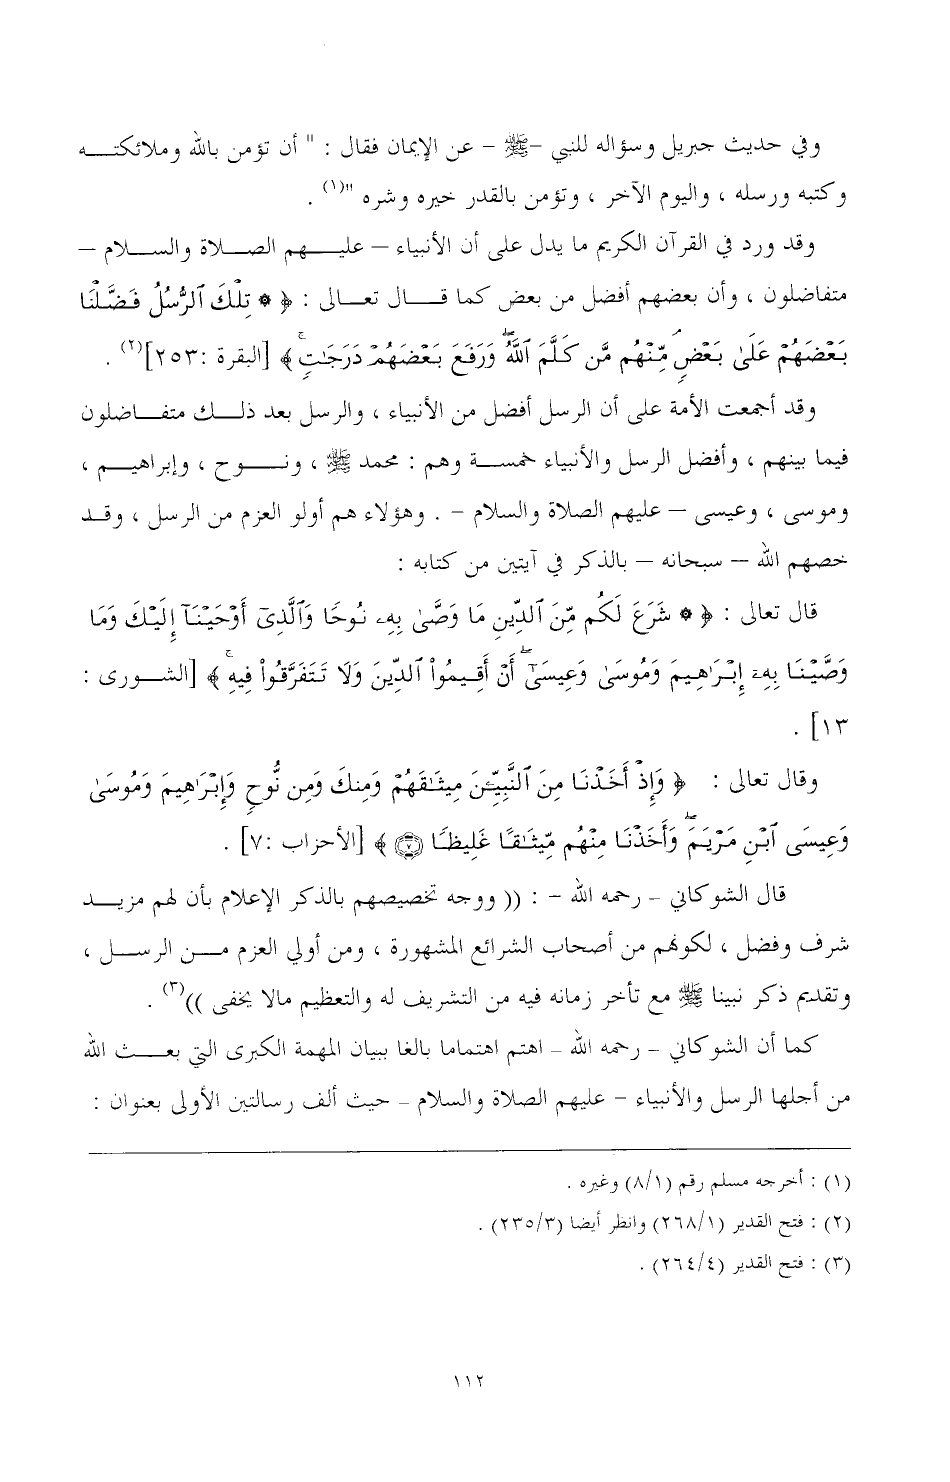 وفي حديث جبريل وسؤاله للنبي -ﷺ - عن الإيمان فقال : " أن تؤمن بالله وملائكته
وكتبه ورسله ، واليوم الآخر ، وتؤمن بالقدر خيره وشره "(١) .
وقد ورد في القرآن الكريم ما يدل على أن الأنبياء – عليهم الصلاة والسلام –
متفاضلون ، وأن بعضهم أفضل من بعض كما قال تعالى : ﴿ ۞ تِلْكَ ٱلرُّسُلُ فَضَّلْنَا
بَعْضَهُمْ عَلَىٰ بَعْضٍ ۘ مِّنْهُم مَّن كَلَّمَ ٱللَّهُ ۖ وَرَفَعَ بَعْضَهُمْ دَرَجَـٰتٍ ۚ ﴾ [البقرة :٢٥٣](٢) .
وقد أجمعت الأمة على أن الرسل أفضل من الأنبياء ، والرسل بعد ذلك متفاضلون
فيما بينهم ، وأفضل الرسل والأنبياء خمسة وهم : محمد ﷺ ، ونوح ، وإبراهيم ،
وموسى ، وعيسى – عليهم الصلاة والسلام - . وهؤلاء هم أولو العزم من الرسل ، وقد
خصهم الله – سبحانه – بالذكر في آيتين من كتابه :
قال تعالى : ﴿ ۞ شَرَعَ لَكُم مِّنَ ٱلدِّينِ مَا وَصَّىٰ بِهِۦ نُوحًا وَٱلَّذِىٓ أَوْحَيْنَآ إِلَيْكَ وَمَا
وَصَّيْنَا بِهِۦٓ إِبْرَٰهِيمَ وَمُوسَىٰ وَعِيسَىٰٓ ۖ أَنْ أَقِيمُوا۟ ٱلدِّينَ وَلَا تَتَفَرَّقُوا۟ فِيهِ ۚ ﴾ [الشورى :
١٣] .
وقال تعالى : ﴿ وَإِذْ أَخَذْنَا مِنَ ٱلنَّبِيِّـۧنَ مِيثَـٰقَهُمْ وَمِنكَ وَمِن نُّوحٍ وَإِبْرَٰهِيمَ وَمُوسَىٰ
وَعِيسَى ٱبْنِ مَرْيَمَ ۖ وَأَخَذْنَا مِنْهُم مِّيثَـٰقًا غَلِيظًا ۝٧ ﴾ [الأحزاب :٧] .
قال الشوكاني - رحمه الله - : (( ووجه تخصيصهم بالذكر الإعلام بأن لهم مزيد
شرف وفضل ، لكونهم من أصحاب الشرائع المشهورة ، ومن أولي العزم من الرسل ،
وتقديم ذكر نبينا ﷺ مع تأخر زمانه فيه من التشريف له والتعظيم مالا يخفى ))(٣) .
كما أن الشوكاني - رحمه الله - اهتم اهتماما بالغا ببيان المهمة الكبرى التي بعث الله
من أجلها الرسل والأنبياء - عليهم الصلاة والسلام - حيث ألف رسالتين الأولى بعنوان :
(١) : أخرجه مسلم رقم (٨/١) وغيره .
(٢) : فتح القدير (٢٦٨/١) وانظر أيضا (٢٣٥/٣) .
(٣) : فتح القدير (٢٦٤/٤) .
١١٢